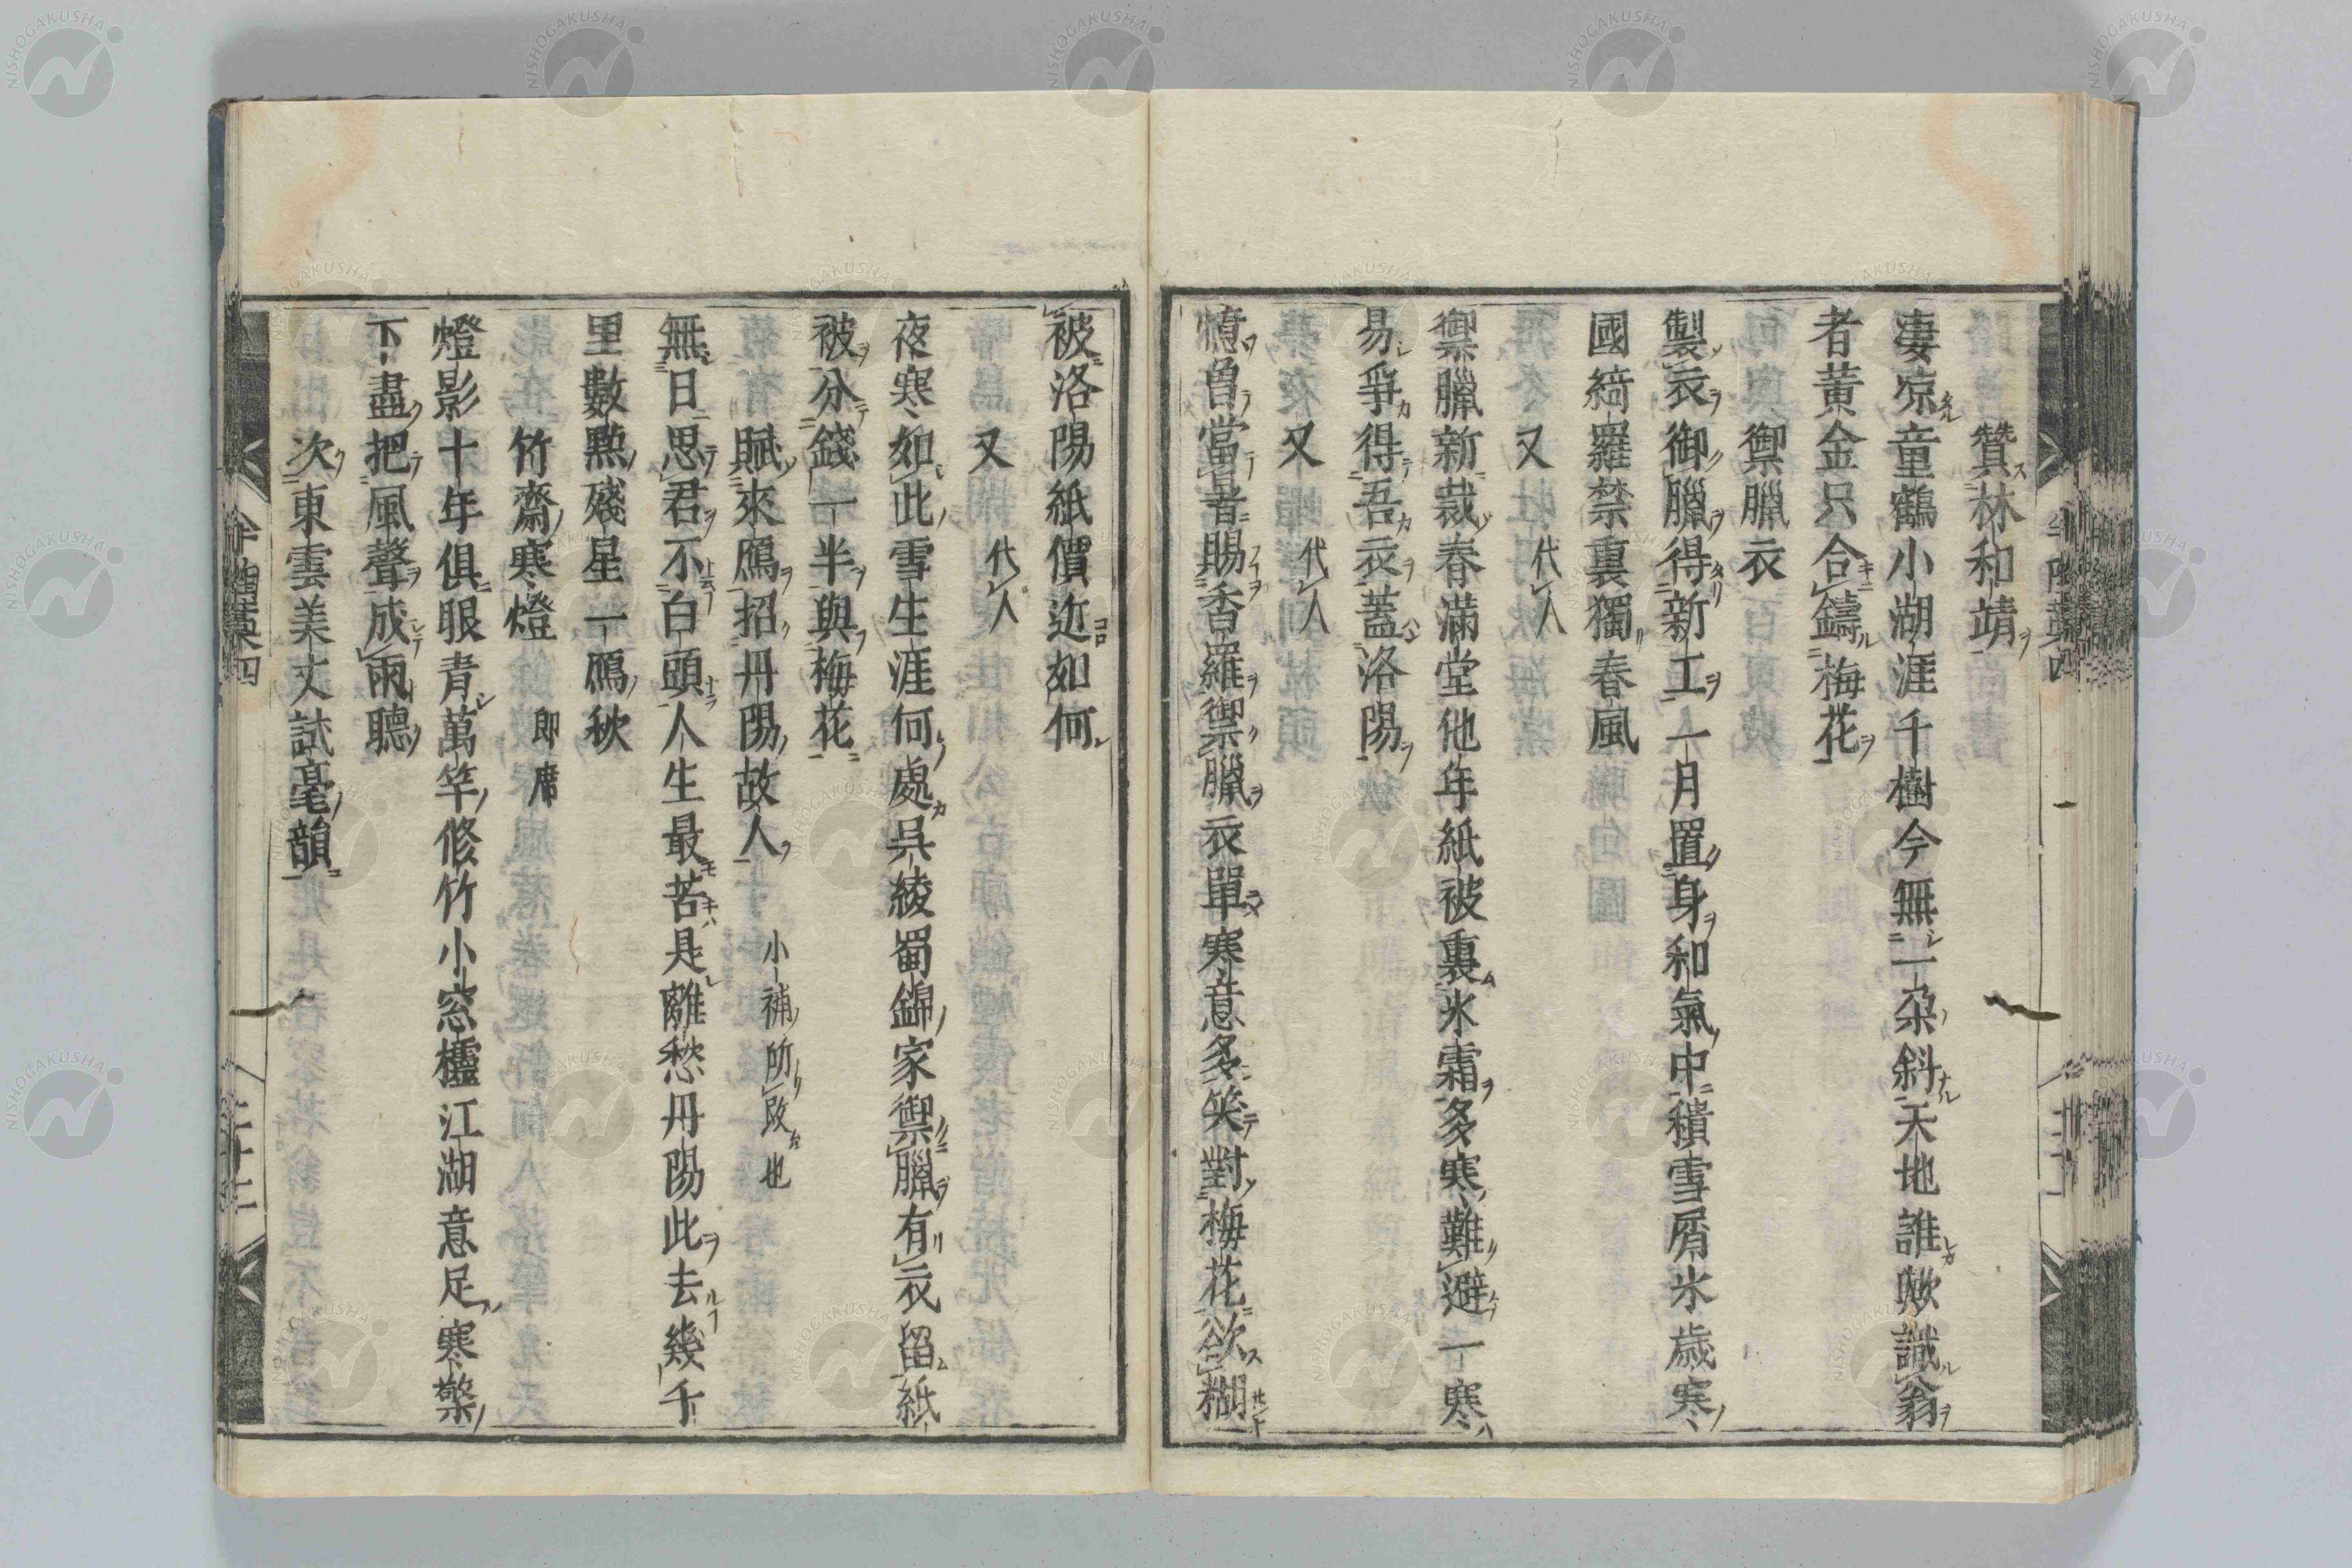 賛林和靖
凄凉童鶴小湖涯千樹今無一朶斜天地誰歟識翁
者黄金只合鑄梅花
禦臘衣
製衣御臘得新工一月置身和氣中積雪屑氷歳寒
國綺羅禁裏獨春風
又 代人
禦臘新裁春滿堂他年紙被裏氷霜多寒難避一寒
易爭得吾衣蓋洛陽
又 代人
憶曽當暑賜香羅禦臘衣單寒意多笑對梅花欲糊
被洛陽紙價近如何
又 代人
夜寒如此雪生涯何處呉綾蜀錦家禦臘有衣留紙
被分錢一半與梅花
賦來鴈招丹陽故人 小補所改也
無日思君不白頭人生最苦是離愁丹陽此去幾千
里數點殘星一鴈秋
竹齋寒燈 即席
燈影十年俱眼青萬竿修竹小窓櫺江湖意足寒檠
下盡把風聲成雨聽
次東雲美丈試毫韻